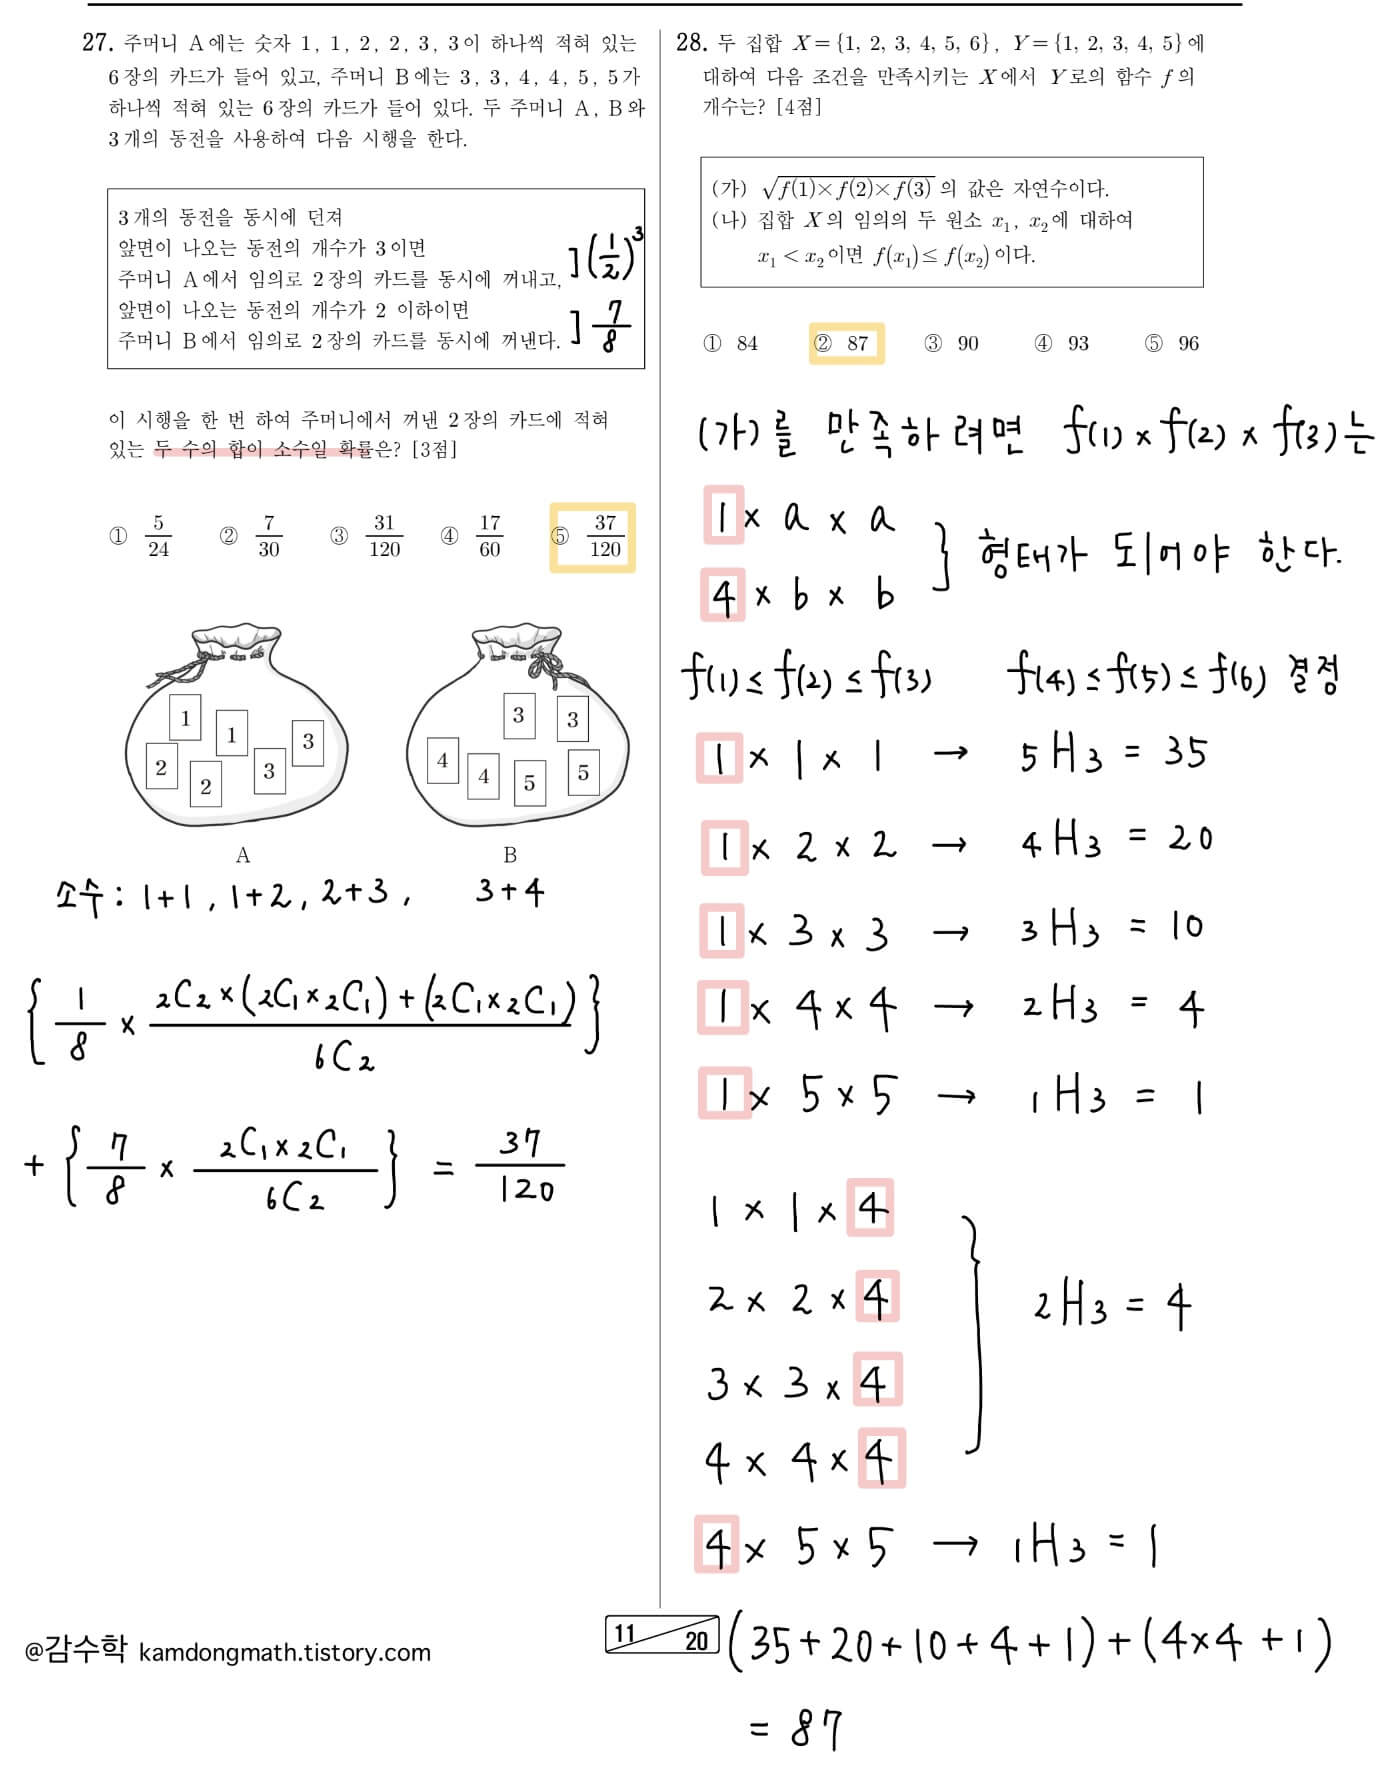 27. 주머니 A에는 숫자 1, 1, 2, 2, 3, 3이 하나씩 적혀 있는
6장의 카드가 들어 있고, 주머니 B에는 3, 3, 4, 4, 5, 5가
하나씩 적혀 있는 6장의 카드가 들어 있다. 두 주머니 A, B와
3개의 동전을 사용하여 다음 시행을 한다.
3개의 동전을 동시에 던져
앞면이 나오는 동전의 개수가 3이면
주머니 A에서 임의로 2장의 카드를 동시에 꺼내고,
](1/2)³
앞면이 나오는 동전의 개수가 2 이하이면
주머니 B에서 임의로 2장의 카드를 동시에 꺼낸다.
] 7/8
이 시행을 한 번 하여 주머니에서 꺼낸 2장의 카드에 적혀
있는 두 수의 합이 소수일 확률은? [3점]
① 5/24 ② 7/30 ③ 31/120 ④ 17/60 ⑤ 37/120
1 1 3 2 2 3
3 3 4 4 5 5
A B
소수 : 1+1, 1+2, 2+3, 3+4
{ 1/8 × (₂C₂×(₂C₁×₂C₁)+(₂C₁×₂C₁))/₆C₂ }
+ { 7/8 × (₂C₁×₂C₁)/₆C₂ } = 37/120
28. 두 집합 X={1, 2, 3, 4, 5, 6}, Y={1, 2, 3, 4, 5}에
대하여 다음 조건을 만족시키는 X에서 Y로의 함수 f의
개수는? [4점]
(가) √(f(1)×f(2)×f(3)) 의 값은 자연수이다.
(나) 집합 X의 임의의 두 원소 x₁, x₂에 대하여
x₁ < x₂이면 f(x₁) ≤ f(x₂)이다.
① 84 ② 87 ③ 90 ④ 93 ⑤ 96
(가)를 만족하려면 f(1)×f(2)×f(3)는
1 × a × a
4 × b × b
} 형태가 되어야 한다.
f(1) ≤ f(2) ≤ f(3) f(4) ≤ f(5) ≤ f(6) 결정
1 × 1 × 1 → ₅H₃ = 35
1 × 2 × 2 → ₄H₃ = 20
1 × 3 × 3 → ₃H₃ = 10
1 × 4 × 4 → ₂H₃ = 4
1 × 5 × 5 → ₁H₃ = 1
1 × 1 × 4
2 × 2 × 4
3 × 3 × 4
4 × 4 × 4
} ₂H₃ = 4
4 × 5 × 5 → ₁H₃ = 1
(35+20+10+4+1)+(4×4+1)
= 87
11 20
@감수학 kamdongmath.tistory.com